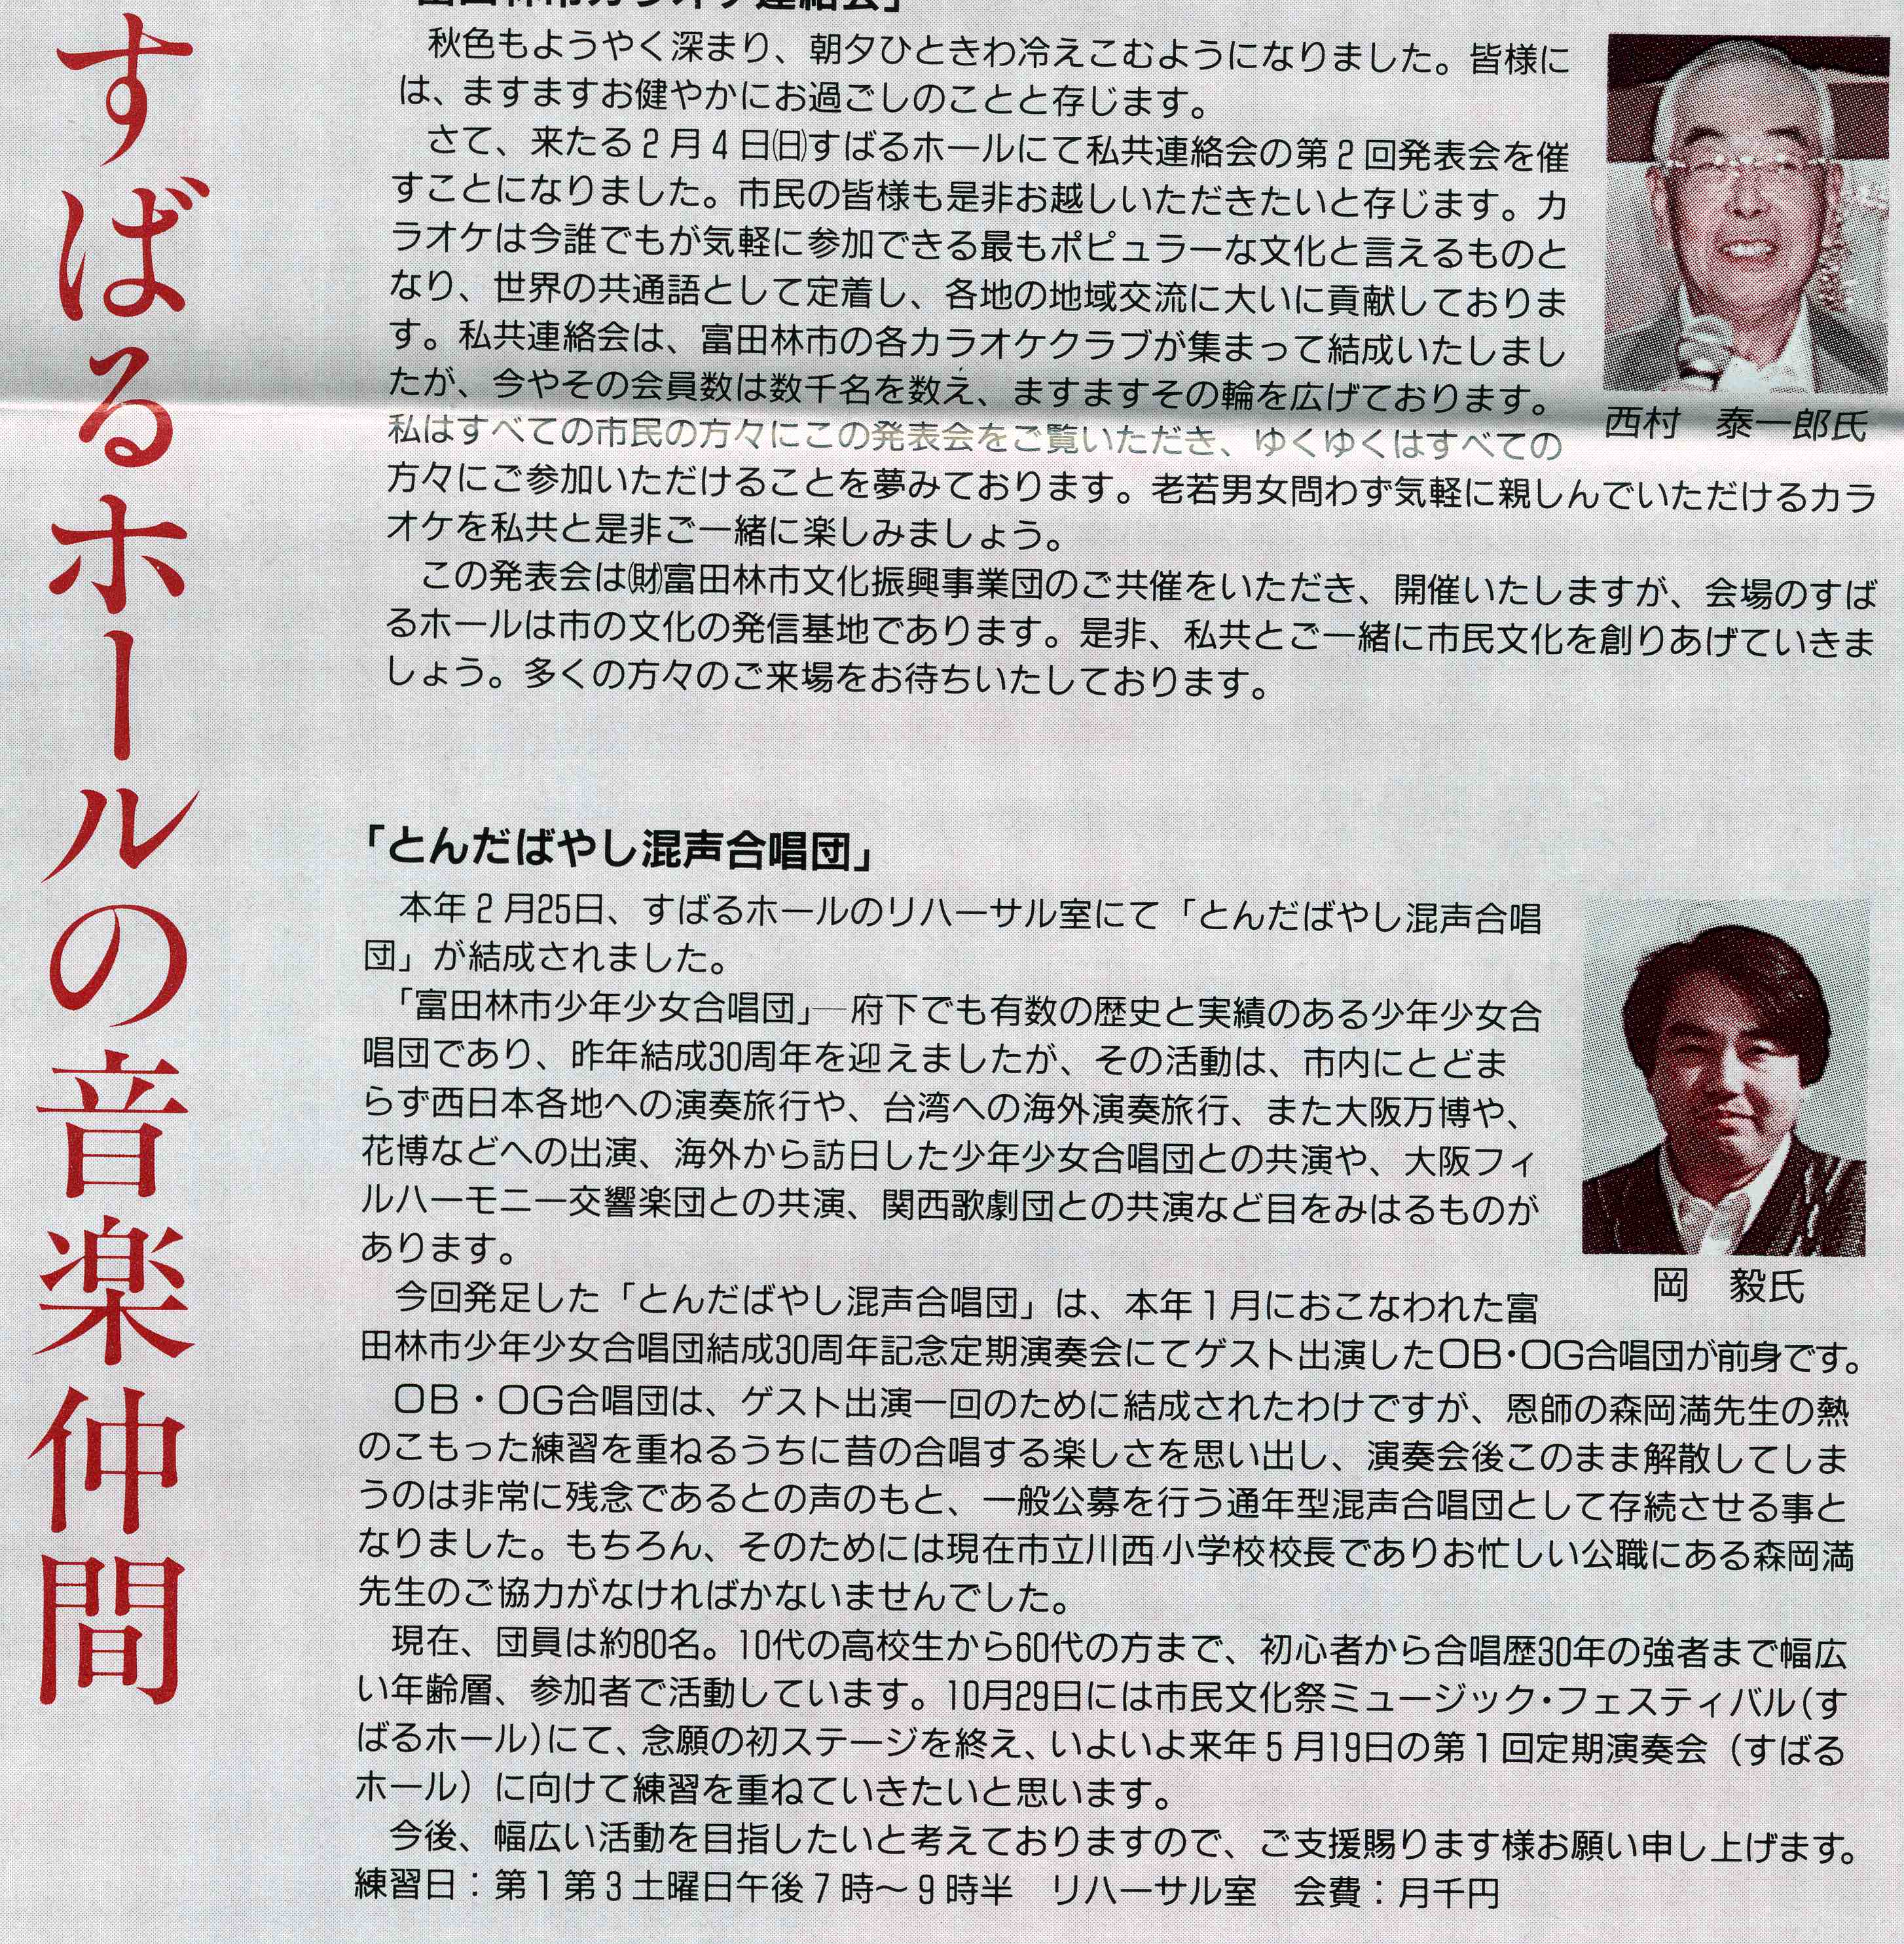 すばるホールの音楽仲間
富田林市カラオケ連絡会」
秋色もようやく深まり、朝夕ひときわ冷えこむようになりました。皆様に
は、ますますお健やかにお過ごしのことと存じます。
さて、来たる2月4日㈰すばるホールにて私共連絡会の第2回発表会を催
すことになりました。市民の皆様も是非お越しいただきたいと存じます。カ
ラオケは今誰でもが気軽に参加できる最もポピュラーな文化と言えるものと
なり、世界の共通語として定着し、各地の地域交流に大いに貢献しておりま
す。私共連絡会は、富田林市の各カラオケクラブが集まって結成いたしまし
たが、今やその会員数は数千名を数え、ますますその輪を広げております。
私はすべての市民の方々にこの発表会をご覧いただき、ゆくゆくはすべての
方々にご参加いただけることを夢みております。老若男女問わず気軽に親しんでいただけるカラ
オケを私共と是非ご一緒に楽しみましょう。
この発表会は㈶富田林市文化振興事業団のご共催をいただき、開催いたしますが、会場のすば
るホールは市の文化の発信基地であります。是非、私共とご一緒に市民文化を創りあげていきま
しょう。多くの方々のご来場をお待ちいたしております。
西村　泰一郎氏
「とんだばやし混声合唱団」
本年2月25日、すばるホールのリハーサル室にて「とんだばやし混声合唱
団」が結成されました。
「富田林市少年少女合唱団」─府下でも有数の歴史と実績のある少年少女合
唱団であり、昨年結成30周年を迎えましたが、その活動は、市内にとどま
らず西日本各地への演奏旅行や、台湾への海外演奏旅行、また大阪万博や、
花博などへの出演、海外から訪日した少年少女合唱団との共演や、大阪フィ
ルハーモニー交響楽団との共演、関西歌劇団との共演など目をみはるものが
あります。
岡　毅氏
今回発足した「とんだばやし混声合唱団」は、本年1月におこなわれた富
田林市少年少女合唱団結成30周年記念定期演奏会にてゲスト出演したOB・OG合唱団が前身です。
OB・OG合唱団は、ゲスト出演一回のために結成されたわけですが、恩師の森岡満先生の熱
のこもった練習を重ねるうちに昔の合唱する楽しさを思い出し、演奏会後このまま解散してしま
うのは非常に残念であるとの声のもと、一般公募を行う通年型混声合唱団として存続させる事と
なりました。もちろん、そのためには現在市立川西小学校校長でありお忙しい公職にある森岡満
先生のご協力がなければかないませんでした。
現在、団員は約80名。10代の高校生から60代の方まで、初心者から合唱歴30年の強者まで幅広
い年齢層、参加者で活動しています。10月29日には市民文化祭ミュージック・フェスティバル(す
ばるホール)にて、念願の初ステージを終え、いよいよ来年5月19日の第1回定期演奏会（すばる
ホール）に向けて練習を重ねていきたいと思います。
今後、幅広い活動を目指したいと考えておりますので、ご支援賜ります様お願い申し上げます。
練習日：第1第3土曜日午後7時〜9時半　リハーサル室　会費：月千円